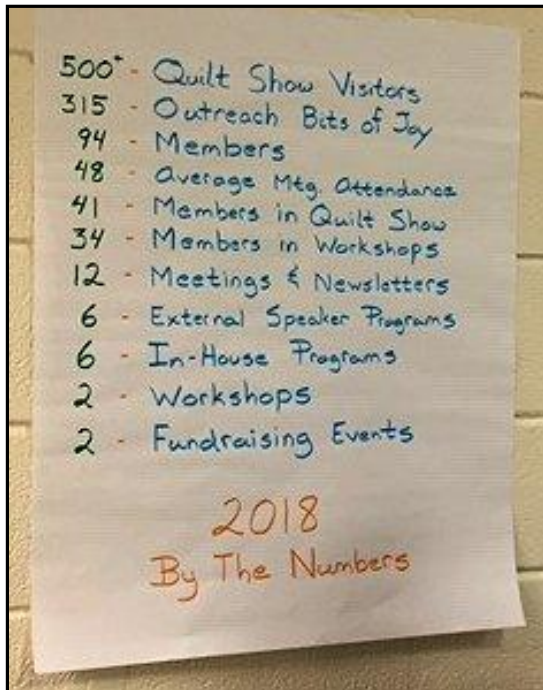 500+ - Quilt Show Visitors
315 - Outreach Bits of Joy
94 - Members
48 - Average Mtg. Attendance
41 - Members in Quilt Show
34 - Members in Workshops
12 - Meetings & Newsletters
6 - External Speaker Programs
6 - In-House Programs
2 - Workshops
2 - Fundraising Events
2018
By The Numbers